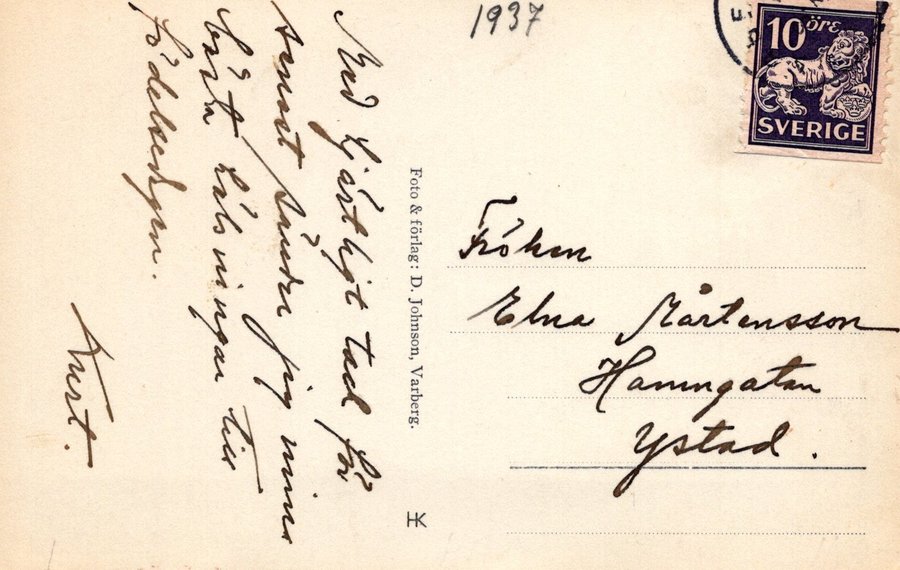 Med hjärtligt tack för
senast sänder jag mina
bästa hälsningar till
födelsedagen.
Kurt.
1937
10 öre
SVERIGE
Foto & förlag: D. Johnson, Varberg.
Fröken
Elna Mårtensson
Hamngatan
Ystad.